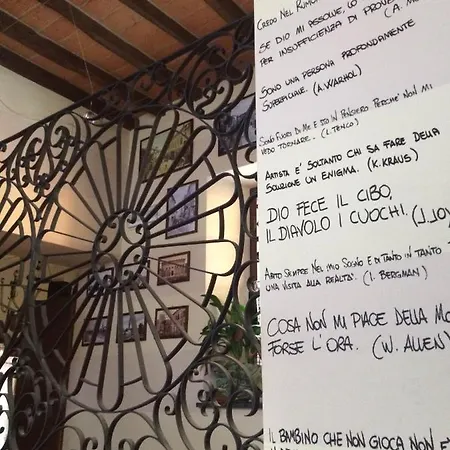 CREDO NEL RUMO
SE DIO MI PERDONE, LO
PER INSUFFICIENZA DI PROVE
(A. M
SONO UNA PERSONA PROFONDAMENTE
SUPERFICIALE. (A. WARHOL)
SONO FUORI DI ME E STO IN PENSIERO PERCHÉ NON MI
VEDO TORNARE. (L. TENCO)
ARTISTA E' SOLTANTO CHI SA FARE DELLA
SOLUZIONE UN ENIGMA. (K. KRAUS)
DIO FECE IL CIBO,
IL DIAVOLO I CUOCHI. (J. JOY
ABITO SEMPRE NEL MIO SOGNO E DI TANTO IN TANTO
UNA VISITA ALLA REALTA'. (I. BERGMAN)
COSA NON MI PIACE DELLA MO
FORSE L'ORA. (W. ALLEN)
IL BAMBINO CHE NON GIOCA NON E'